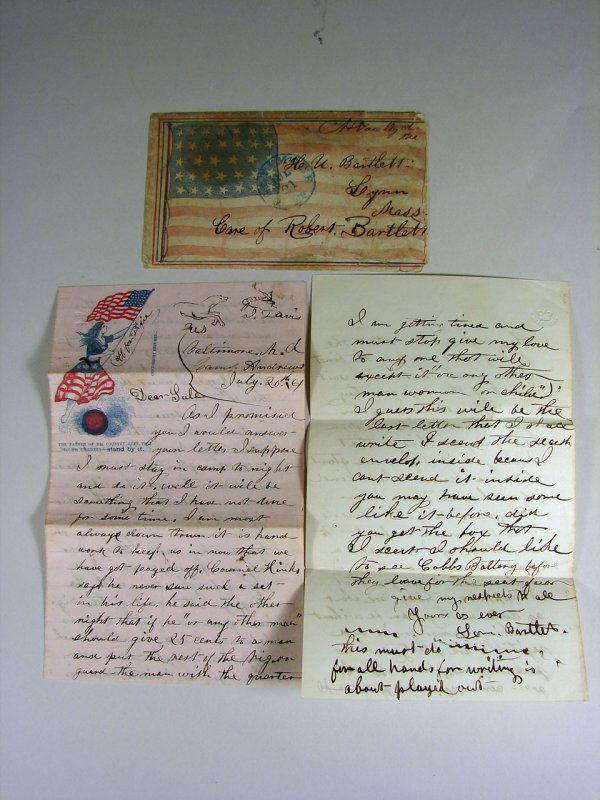 H. U. Bartlett
Lynn
Mass.
Care of Robert Bartlett
us J. Davis
Baltimore M.d
Camp Andrews
July. 20th 61
Dear Jule
As I promised
you I would answer
your letter I suppose
I must stay in camp to night
and do it, well it will be
something that I have not done
for some time. I am most
always down town. it is hard
work to keep us in now that we
have got payed off. Coronel Hinks
says he never saw such a set
in his life. he said the other
night that if he "or any other man"
should give 25 cents to a man
and put the rest of the Big on
guard the man with the quarter
THE FATHER OF HIS COUNTRY
stand by it.
I am getting tired and
must stop give my love
to any one that will
except it "or any other
man woman or child")
I guess this will be the
last letter that I shall
write I scend the secesh
envelop inside because I
cant scend it inside
you may have seen some
like it before. did
you get the box that
I scent I should like
to see Cobbs Battery before
they leave for the seat of war
give my respects to all
Yours as ever
Lom. Bartlett.
this must do
for all hands for writing is
about played out